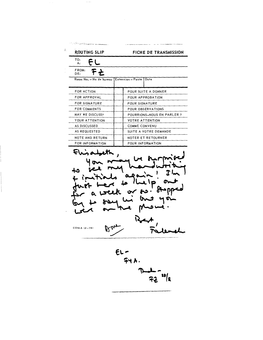 ROUTING SLIP FICHE DE TRANSMISSION
TO: A: EL
FROM: DE: FZ
Room No. - No de bureau Extension - Poste Date
FOR ACTION POUR SUITE A DONNER
FOR APPROVAL POUR APPROBATION
FOR SIGNATURE POUR SIGNATURE
FOR COMMENTS POUR OBSERVATIONS
MAY WE DISCUSS? POURRIONS-NOUS EN PARLER ?
YOUR ATTENTION VOTRE ATTENTION
AS DISCUSSED COMME CONVENU
AS REQUESTED SUITE A VOTRE DEMANDE
NOTE AND RETURN NOTER ET RETOURNER
FOR INFORMATION POUR INFORMATION
Elisabeth,
You may be surprised
to see my handwriting
& initials again! I'm
just here to help out
for a week or so. Stopped
by to say hi but you
were on the phone.
Best
EL-
FYA.
FZ